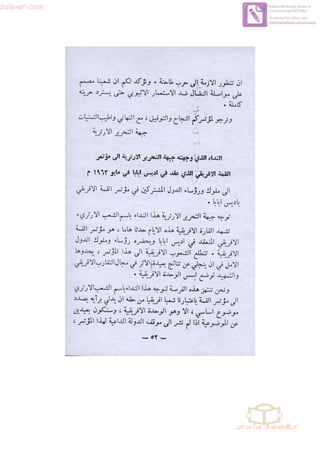 zula-eri.com
Edited with the trial version of
Foxit Advanced PDF Editor
To remove this notice, visit:
www.foxitsoftware.com/shopping
ان تتطور الازمة إلى حرب طاحنة . ونؤكد لكم ان شعبنا مصمم
على مواصلة النضال ضد الاستعمار الاثيوبي حتى يسترد حريته
كاملة .
ونرجو لمؤتمركم النجاح والتوفيق ، مع التهاني واطيب التمنيات
جبهة التحرير الارترية
النداء الذي وجهته جبهة التحرير الارترية الى مؤتمر
القمة الافريقي الذي عقد في اديس ابابا في مايو ١٩٦٣ م
الى ملوك ورؤساء الدول المشتركين في مؤتمر القمة الافريقي
باديس ابابا .
توجه جبهة التحرير الارترية هذا النداء باسم الشعب الارتري .
تشهد القارة الافريقية هذه الايام حدثا هاما ، هو مؤتمر القمة
الافريقي المنعقد في اديس ابابا ويحضره رؤساء وملوك الدول
الافريقية . تتطلع الشعوب الافريقية الى هذا المؤتمر ، يحدوها
الامل في ان ينجلي عن نتائج بعيدة الاثر في مجال التقارب الافريقي
والتمهيد لوضع اسس الوحدة الافريقية .
ونحن ننتهز هذه الفرصة لنوجه هذا النداء باسم الشعب الارتري
الى مؤتمر القمة باعتبارنا شعبا افريقيا من حقه ان يدلي برأيه بصدد
موضوع اساسي ، الا وهو الوحدة الافريقية ، وسنكون بعيدين
عن الموضوعية اذا لم نشر الى موقف الدولة الداعية لهذا المؤتمر ،
— ٥٢ —
zula books